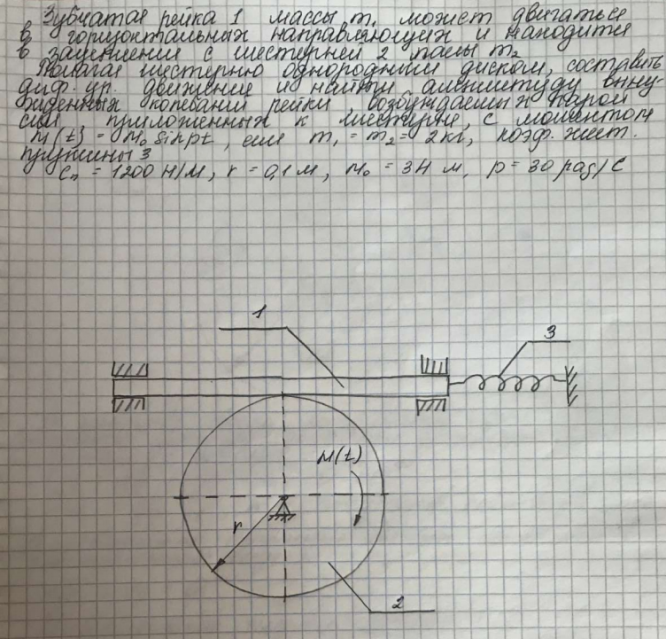 Зубчатая рейка 1 массы m₁ может двигаться
в горизонтальных направляющих и находится
в зацеплении с шестерней 2 массы m₂
Полагая шестерню однородным диском, составить
диф. ур. движения и найти амплитуду выну-
жденных колебаний рейки, возбуждаемых парой
сил, приложенных к шестерне, с моментом
M(t) = M₀ sin pt, если m₁ = m₂ = 2 кг, коэф. жест.
пружины 3
Cₙ = 1200 Н/м, r = 0,1 м, M₀ = 3 Н м, p = 30 рад/с
1
3
M(t)
r
2